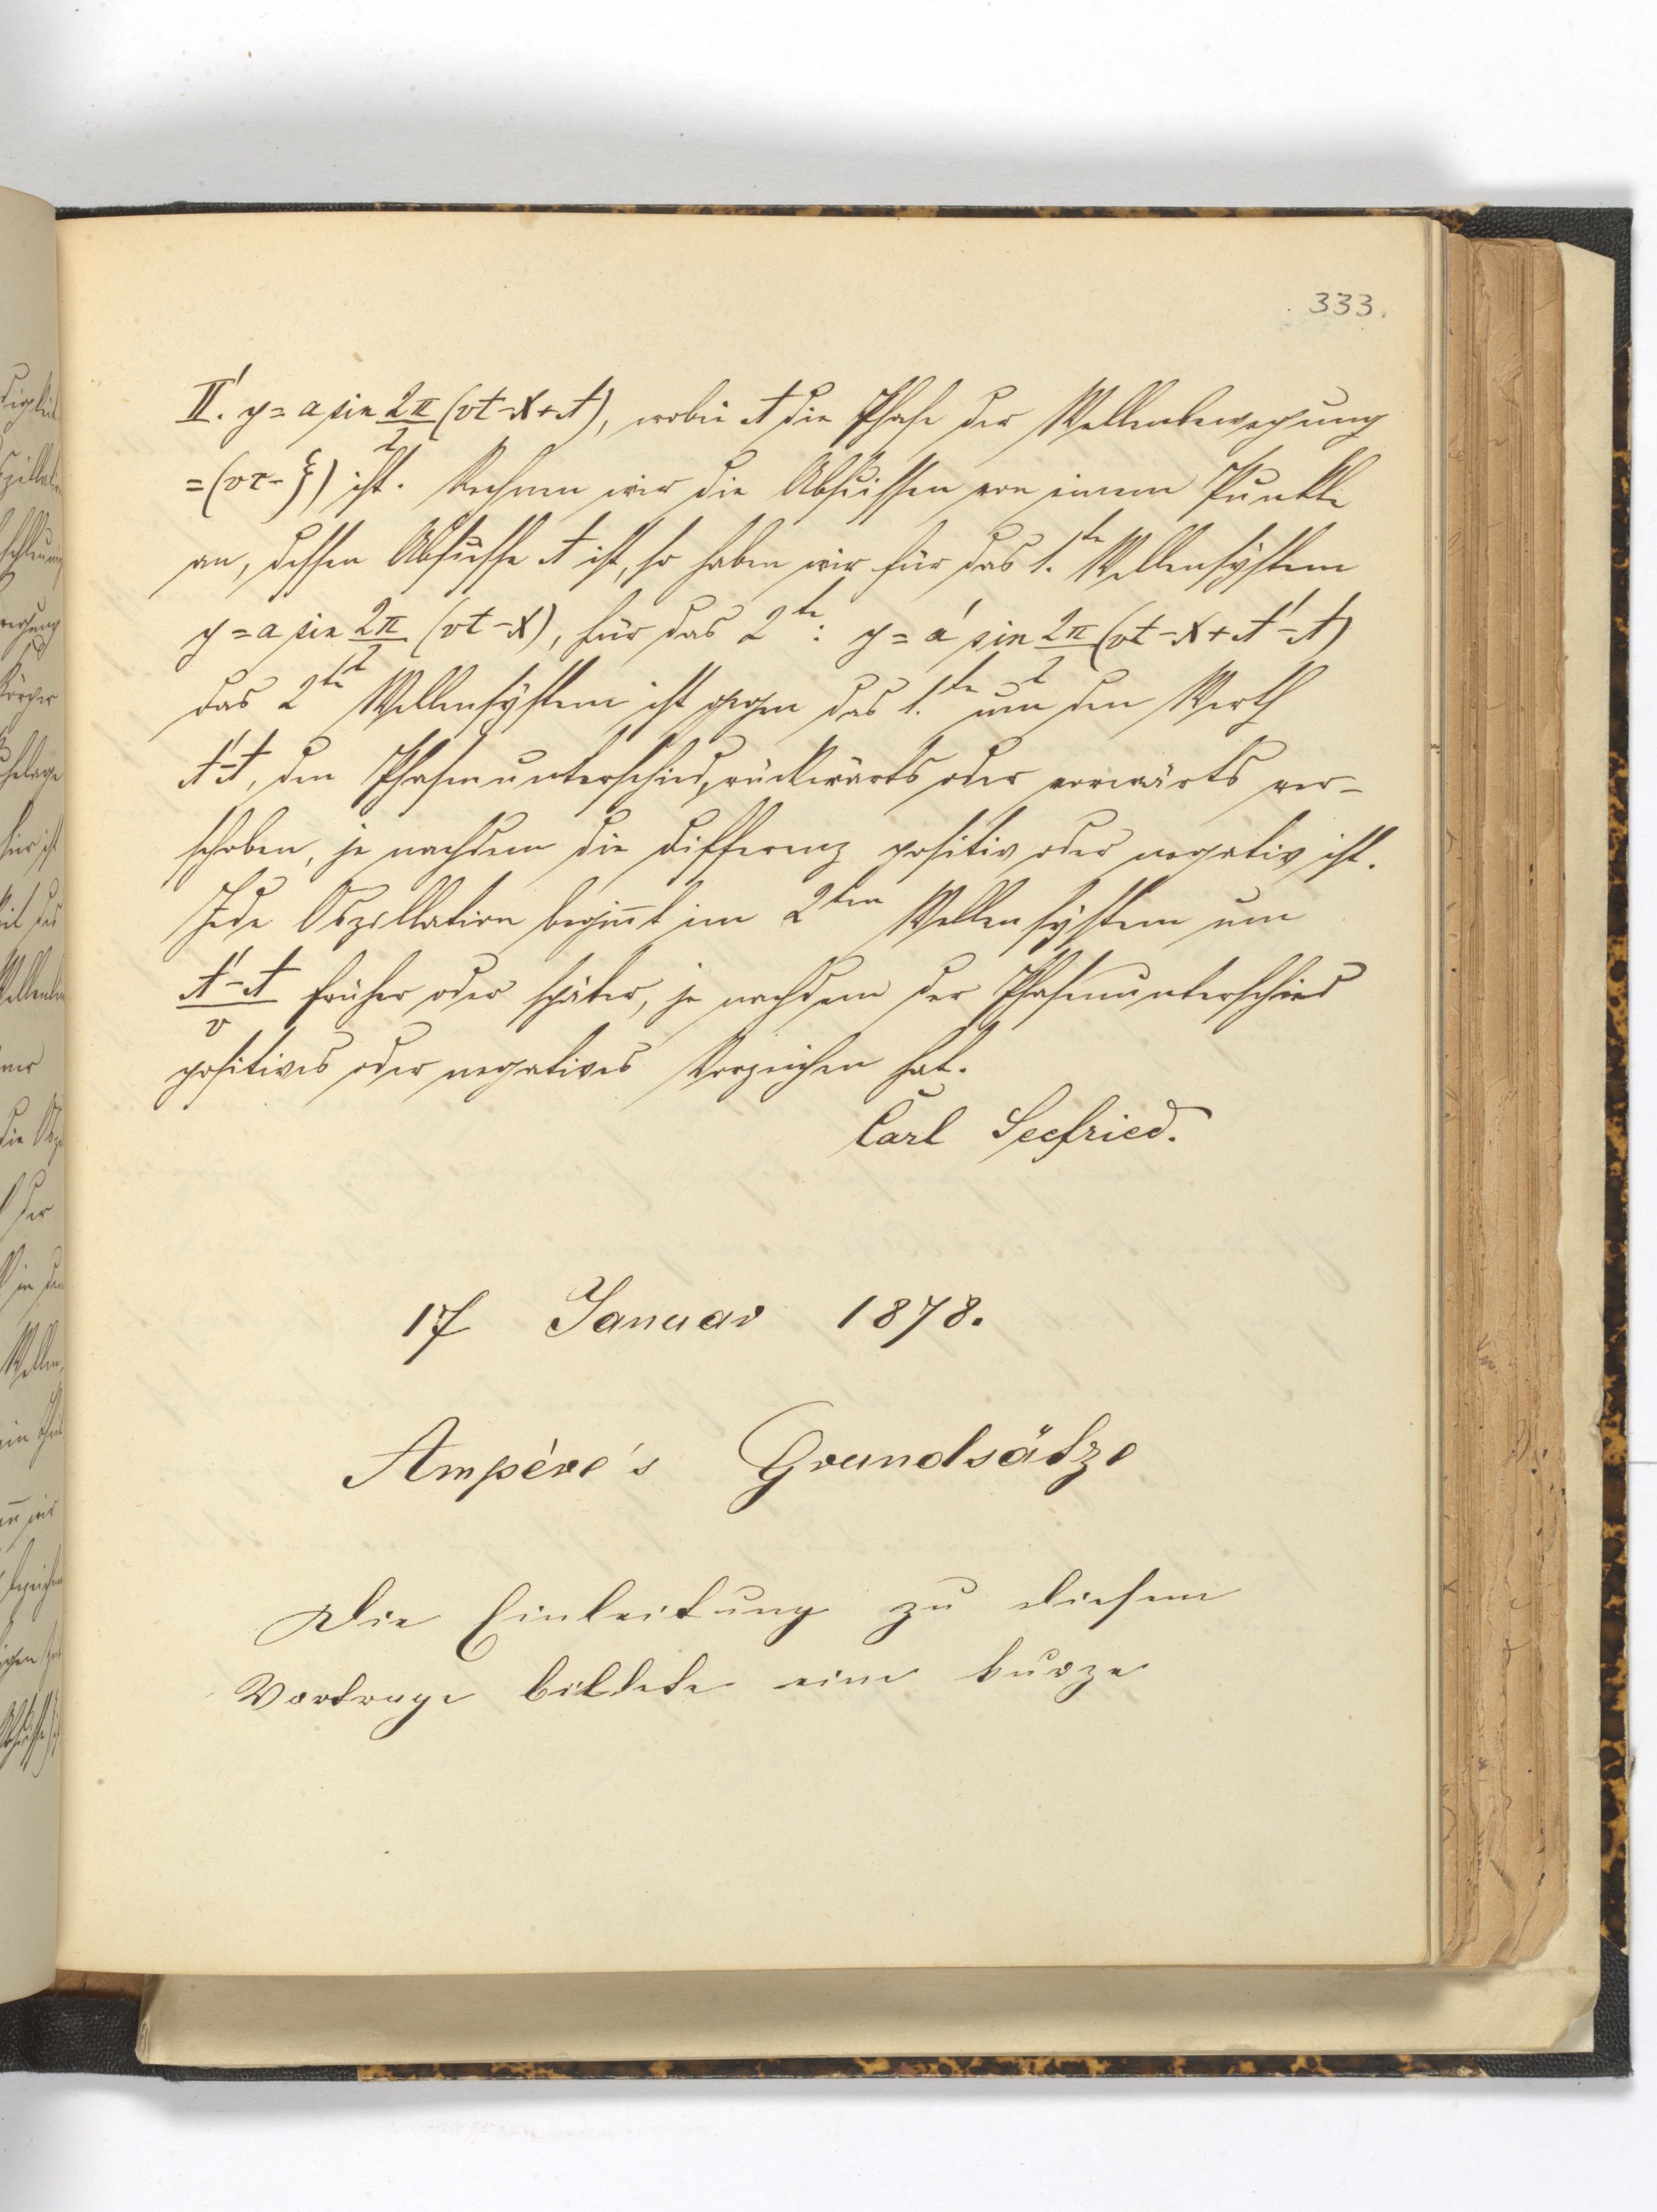 333.
II'. y = a sin 2π/λ (vt - x + A), wobei A die Phase der Wellenbewegung
= (vτ - ξ) ist. Rechnen wir die Abscissen von einem Punkte
an, dessen Abscisse A ist, so haben wir für das 1.te Wellensystem
y = a sin 2π/λ (vt - x), für das 2te: y = a' sin 2π/λ (vt - x + A' - A)
das 2te Wellensystem ist gegen das 1.te um den Werth
A'-A, den Phasenunterschied, rückwärts oder vorwärts ver-
schoben, je nachdem die Differenz positiv oder negativ ist.
Jede Oszillation beginnt im 2ten Wellensystem um
A'-A/v früher oder später, je nachdem der Phasenunterschied
positives oder negatives Vorzeichen hat.
Carl Seefried.
17 Januar 1878.
Ampère's Grundsätze
Die Einleitung zu diesem
Vortrage bildete eine kurze